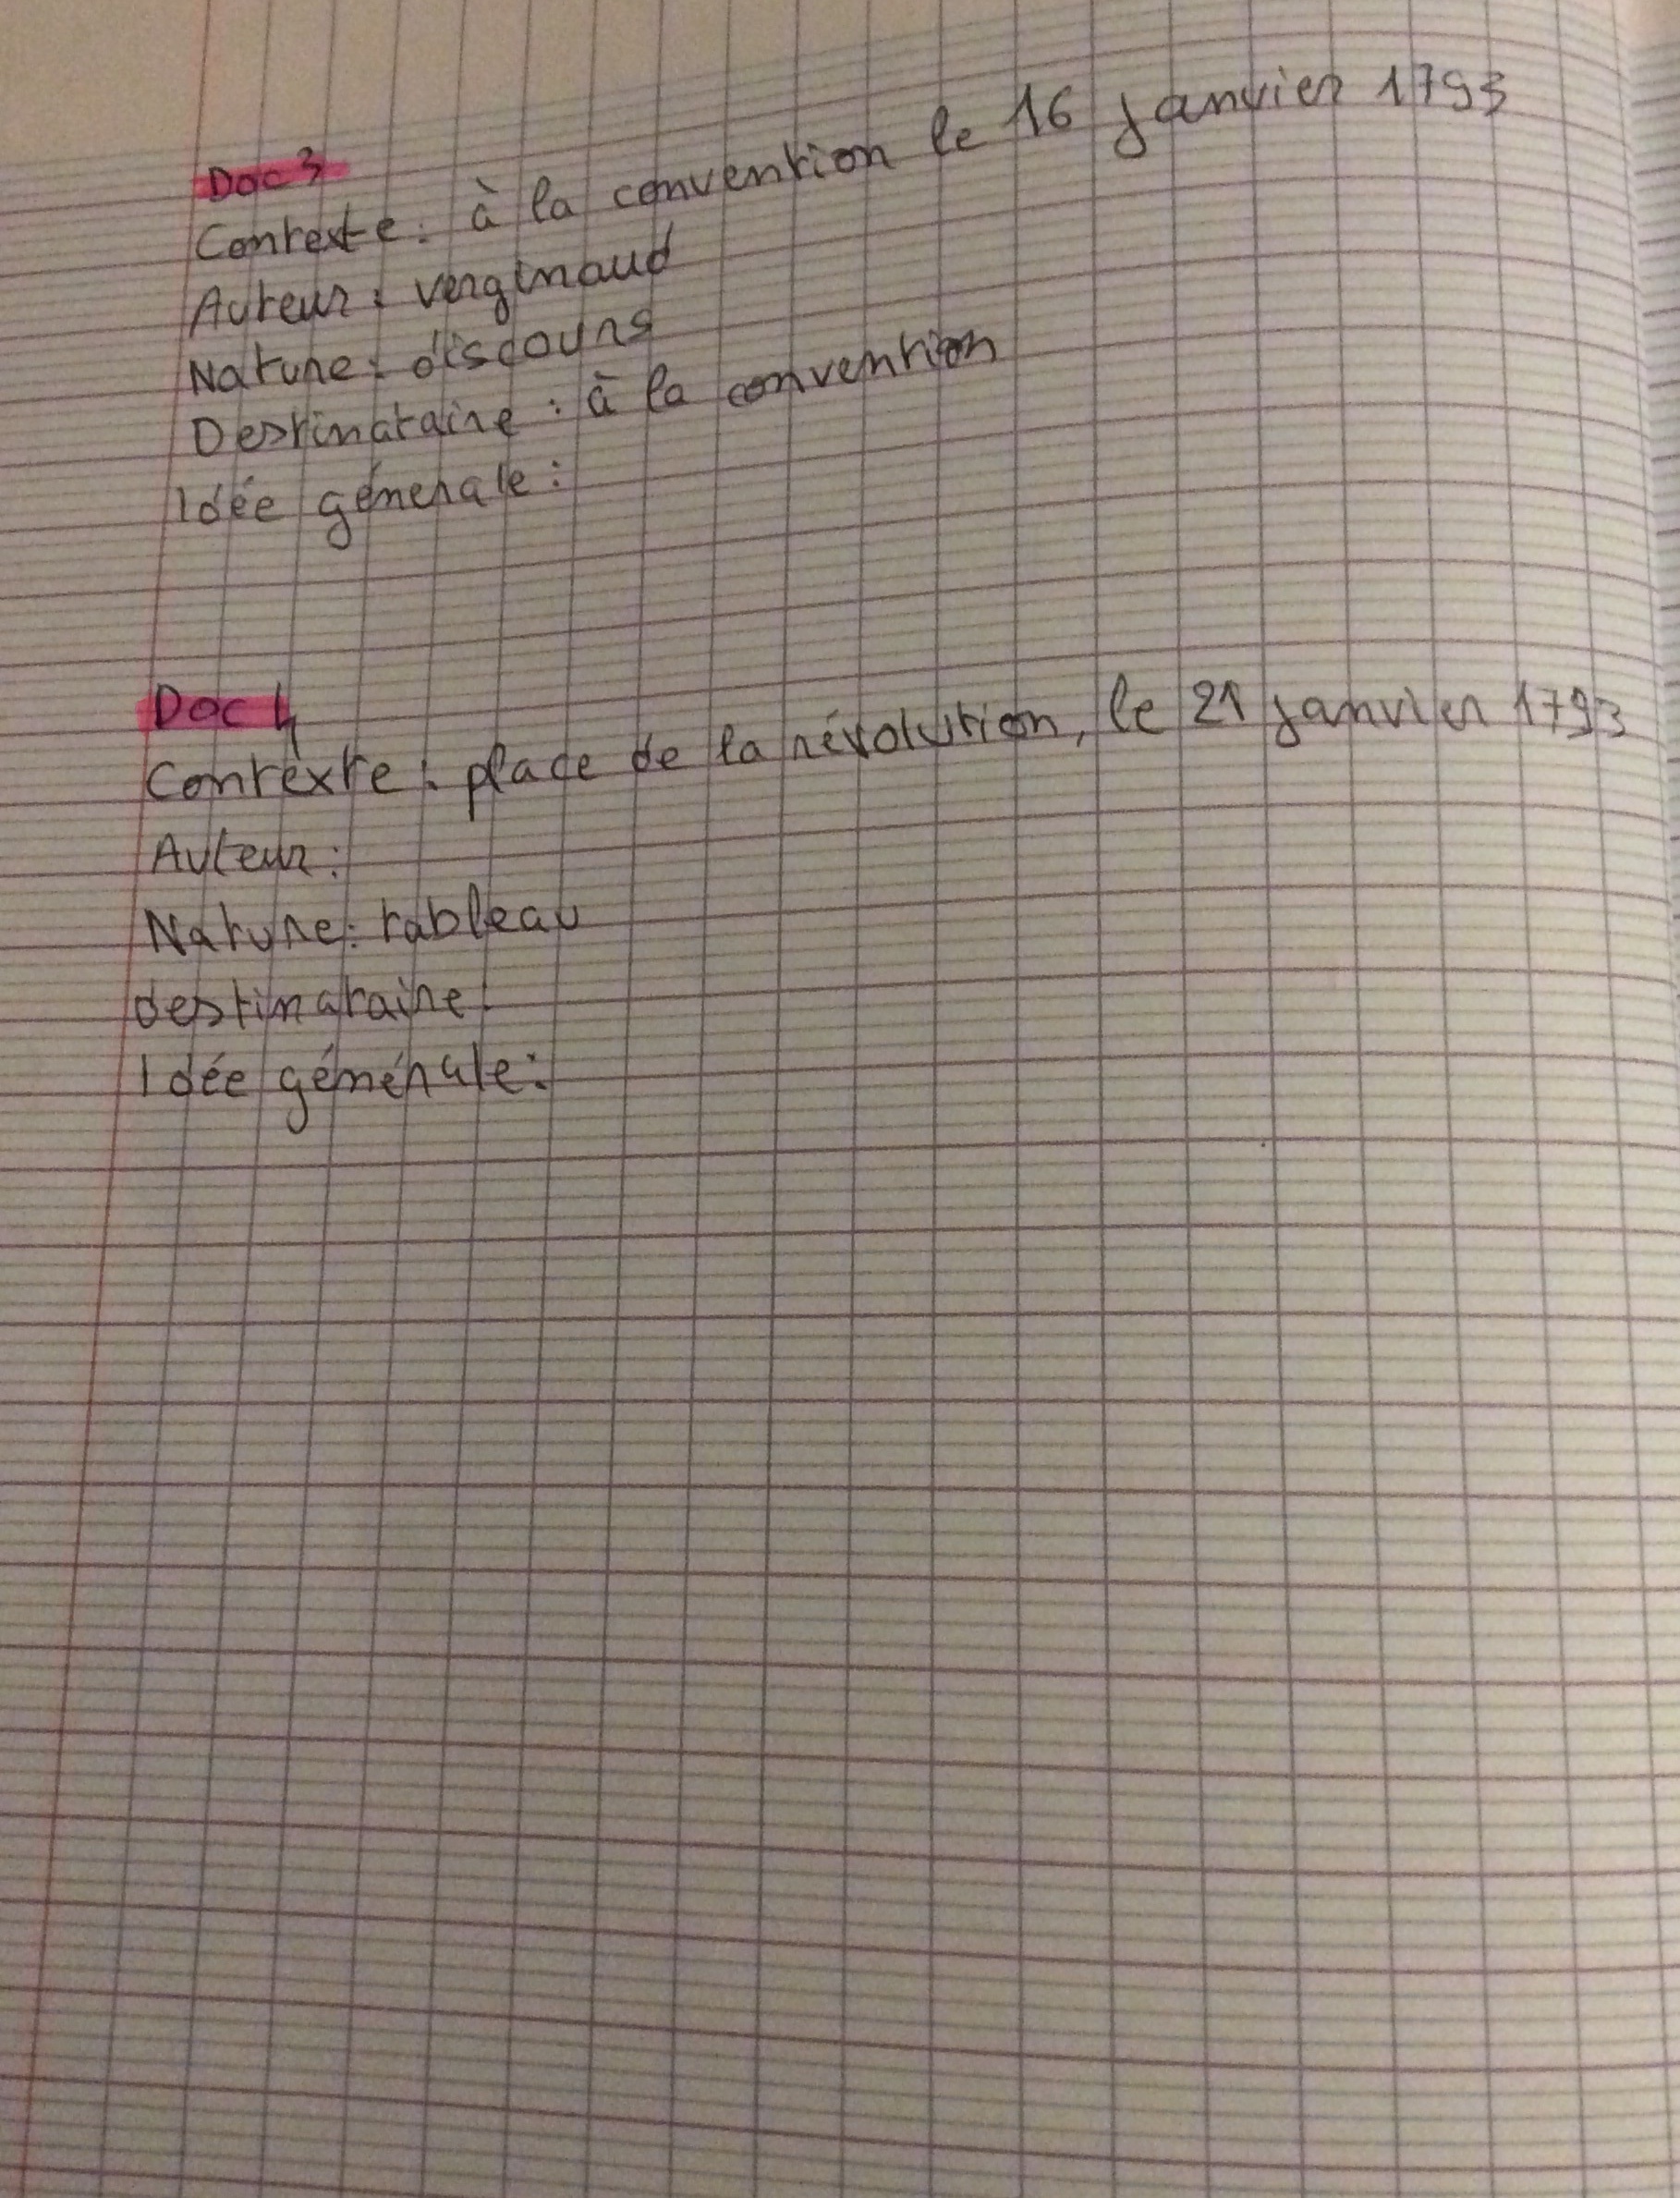 Doc 3
Contexte : à la convention le 16 janvier 1793
Auteur : verginaud
Nature : discours
Destinataire : à la convention
Idée génerale :
Doc 4
Contexte : place de la révolution, le 21 janvier 1793
Auteur :
Nature : tableau
destinataire :
Idée générale :